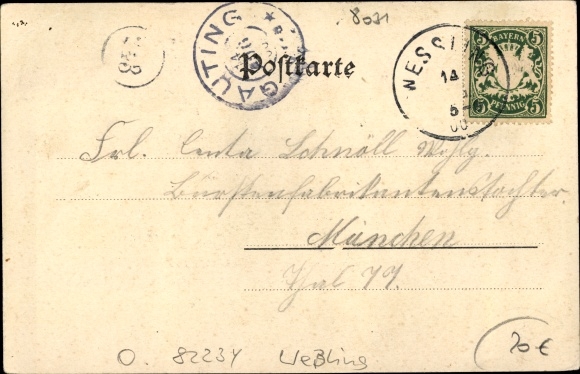 8031
GAUTING
Postkarte
WESSL
14
5
00
BAYERN
5 5
5 PFENNIG 5
Frl. Centa Schnöll Wohlg.
Bürstenfabrikantenstochter
München
Thal 77.
O. 82234 Weßling
20 €